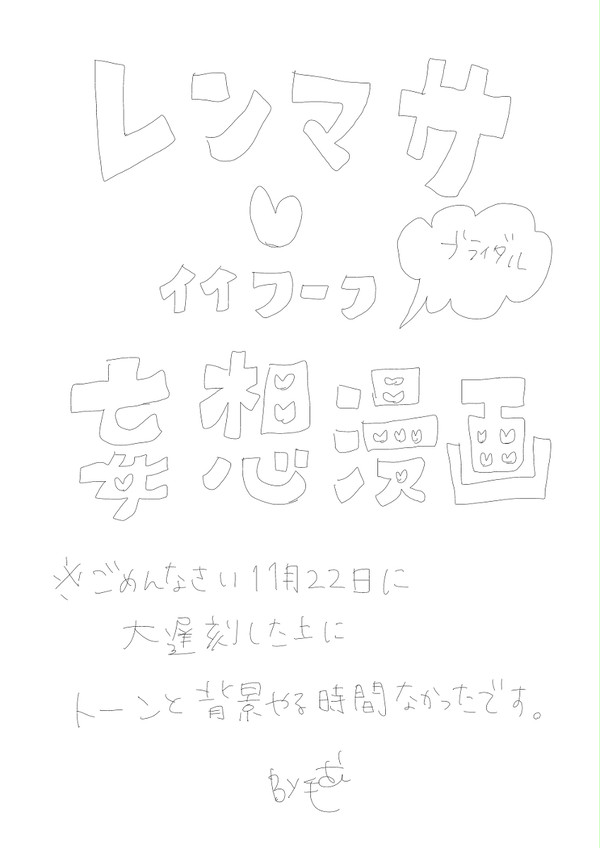 レンマサ
イイフーフ
ブライダル
妄想漫画
※ごめんなさい11月22日に
大遅刻した上に
トーンと背景やる時間なかったです。
BY